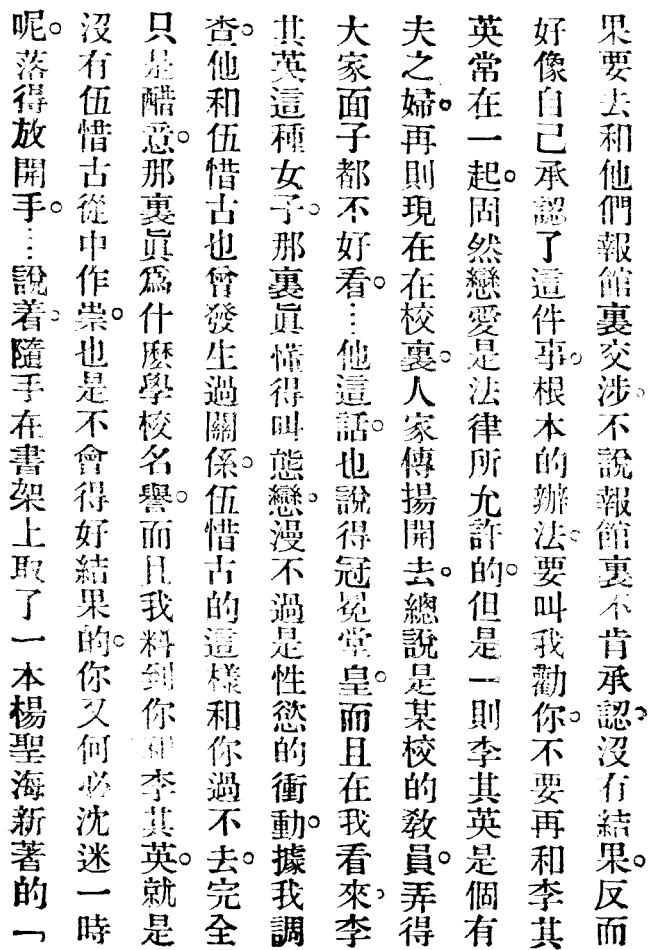 果要去和他們報館裏交涉。不說報館裏不肯承認。沒有結果。反而
好像自己承認了這件事。根本的辦法。要叫我勸你。不要再和李其
英常在一起。固然戀愛是法律所允許的。但是一則李其英是個有
夫之婦。再則現在在校裏。人家傳揚開去。總說是某校的敎員。弄得
大家面子都不好看。…他這話。也說得冠冕堂皇。而且在我看來，李
其英這種女子。那裏眞懂得叫戀。漫不過是性慾的衝動。據我調
查。他和伍惜古也曾發生過關係。伍惜古的這樣和你過不去。完全
只是醋意。那裏眞爲什麽學校名譽。而且我料到你和李其英。就是
沒有伍惜古從中作祟。也是不會得好結果的。你又何必沈迷一時
呢。落得放開手。…說着。隨手在書架上取了一本楊聖海新著的「